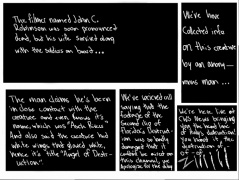 The pilot named John C.
Robinson was soon pronounced
dead, but his wife survived along
with the soldiers on board...
We've have
collected info
on this creature
by an anony-
mous man...
The man claims he's been
in close contact with the
creature and even knows it's
name, which was
And also said the creature had
white wings that glowed white,
hence it's title "Angel of Dest-
ruction".
We've received all
saying that the
footage of the
Second day of
Florida's Destruct-
ion was so badly
damaged that it
cannot be aired on
this channel, we
apologize for the delay
We're here, live at
News bringing
you the
of
it the
destruction of